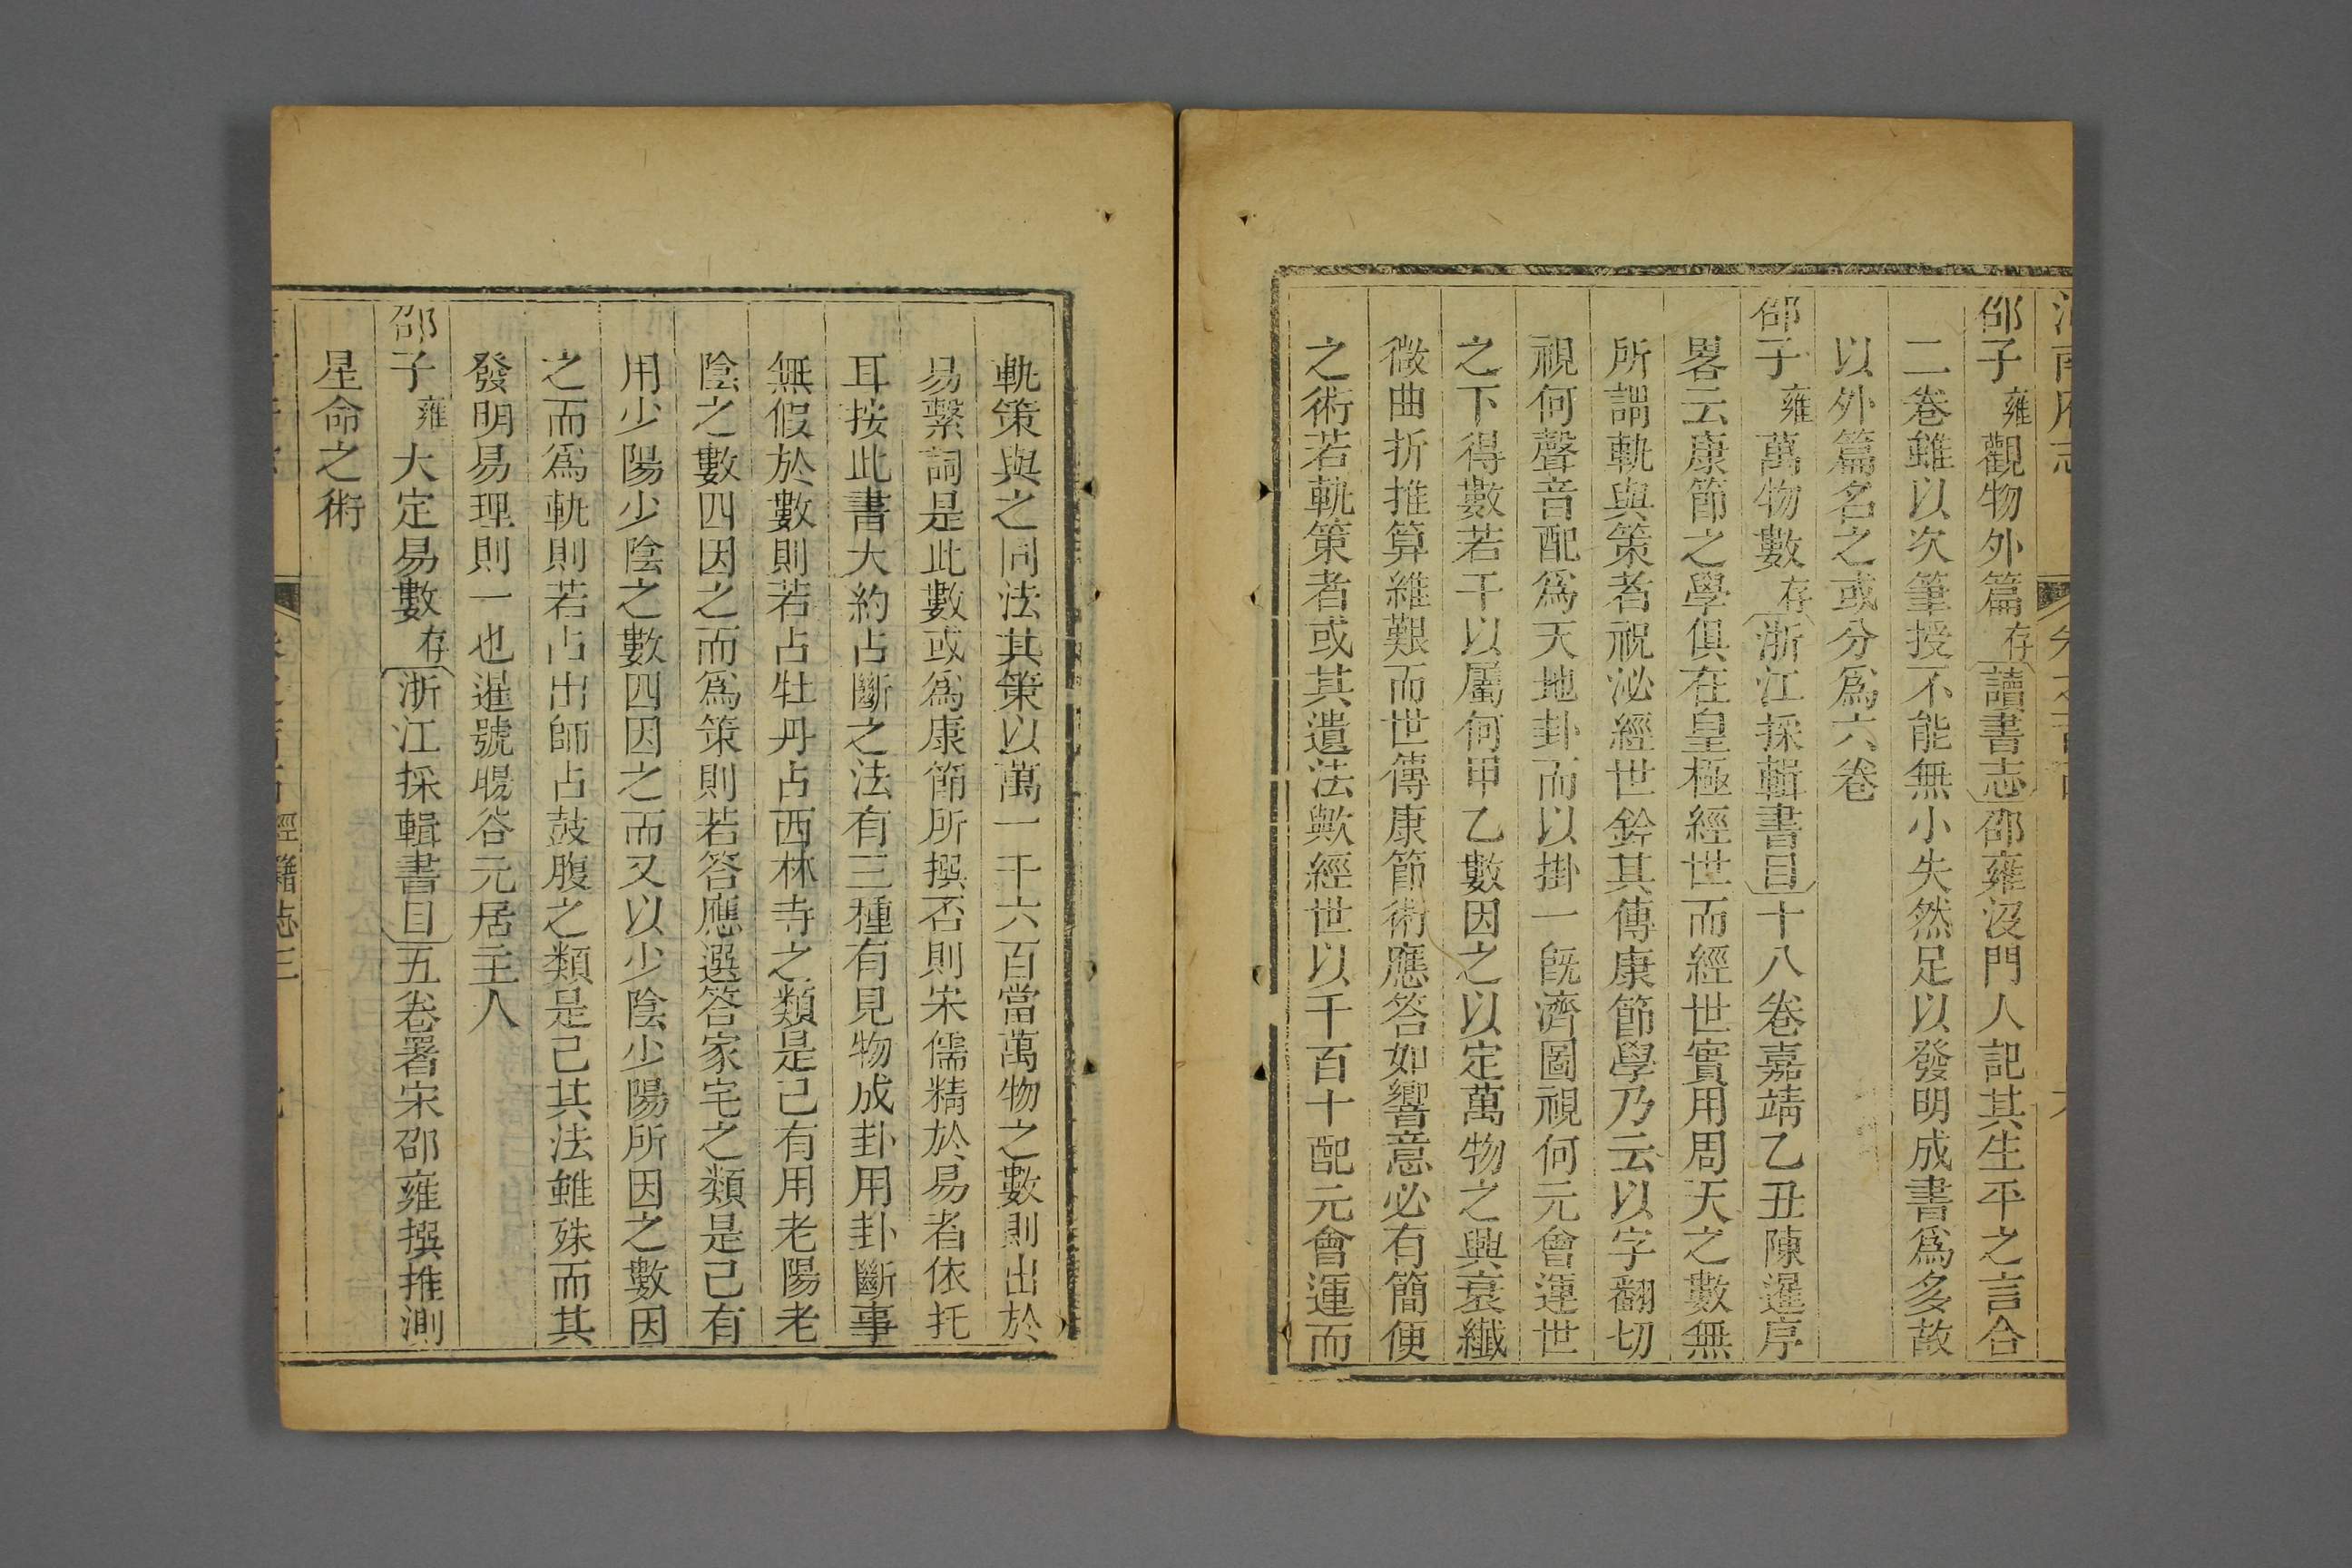 河南府志
邵子雍觀物外篇存讀書志邵雍沒門人記其生平之言合
二卷雖以次筆授不能無小失然足以發明成書爲多故
以外篇名之或分爲六卷
邵子雍萬物數存浙江採輯書目十八卷嘉靖乙丑陳暹序
畧云康節之學俱在皇極經世而經世實用周天之數無
所謂軌與策者祝泌經世鈐其傳康節學乃云以字翻切
視何聲音配爲天地卦而以掛一旣濟圖視何元會運世
之下得數若干以屬何甲乙數因之以定萬物之興衰纖
微曲折推算維艱而世傳康節術應答如響意必有簡便
之術若軌策者或其遺法歟經世以千百十配元會運而
軌策與之同法其策以萬一千六百當萬物之數則出於
易繫詞是此數或爲康節所撰否則宋儒精於易者依托
耳按此書大約占斷之法有三種有見物成卦用卦斷事
無假於數則若占牡丹占西林寺之類是己有用老陽老
陰之數四因之而爲策則若答應選答家宅之類是己有
用少陽少陰之數四因之而又以少陰少陽所因之數因
之而爲軌則若占出師占鼓腹之類是己其法雖殊而其
發明易理則一也暹號暘谷元居主人
邵子雍大定易數存浙江採輯書目五卷署宋邵雍撰推測
星命之術
經籍志三